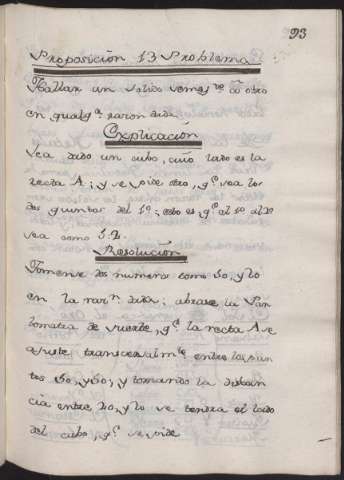 93
Proposición 13 Problema
Hallar un solido semejte a otro
en qualqa razon dada.
Explicación
sea dado un cubo, cuio lado es la
recta A; y se pide otro, qe sea los
dos quintos del 1o; esto es qe el 1o al 2o
sea como 5.2.
Resolución
Tomense dos numeros como 50, y 20
en la razn dada; abrase la Pan
tometra de suerte, qe la recta A se
ajuste transversalmte entre los pun
tos 50, y 50, y tomando la distan
cia entre 20, y 20 se tendra el lado
del cubo, qe se pide